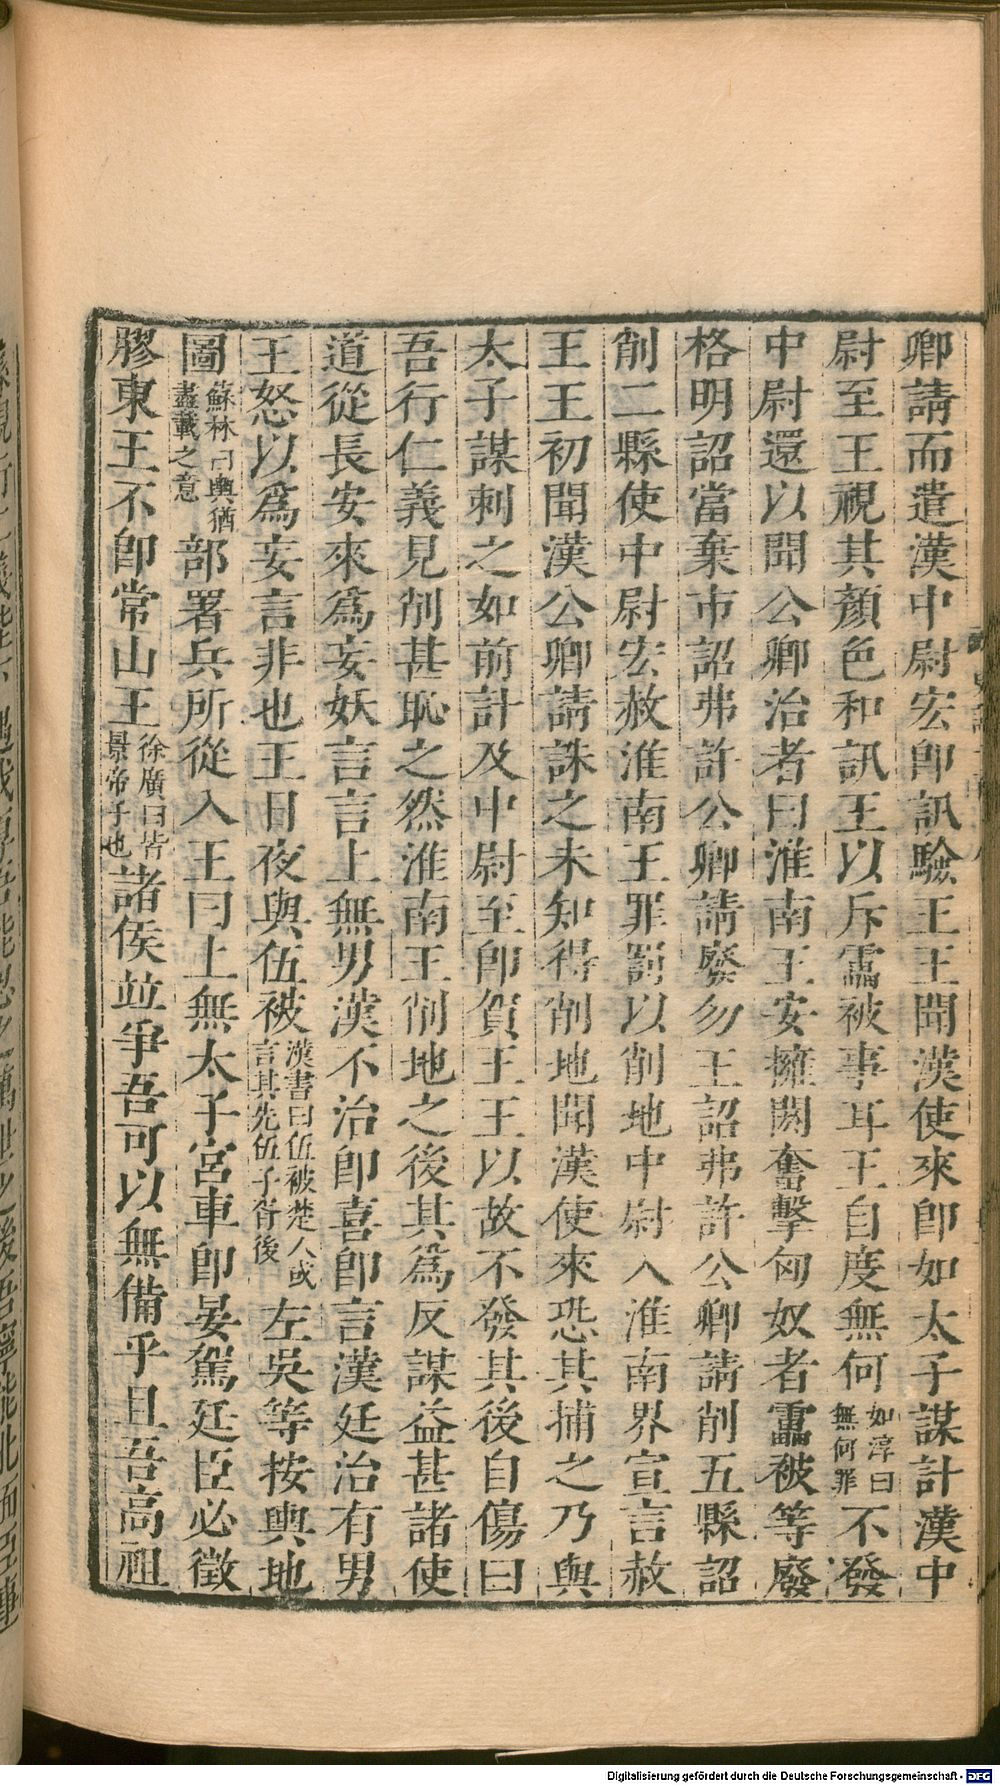 卿請而遣漢中尉宏即訊驗王王聞漢使來即如太子謀計漢中
尉至王視其顏色和訊王以斥雷被事耳王自度無何如淳曰無何罪不發
中尉還以聞公卿治者曰淮南王安擁閼奮擊匈奴者雷被等廢
格明詔當棄市詔弗許公卿請廢勿王詔弗許公卿請削五縣詔
削二縣使中尉宏赦淮南王罪罰以削地中尉入淮南界宣言赦
王王初聞漢公卿請誅之未知得削地聞漢使來恐其捕之乃與
太子謀刺之如前計及中尉至即賀王王以故不發其後自傷曰
吾行仁義見削甚恥之然淮南王削地之後其爲反謀益甚諸使
道從長安來爲妄妖言言上無男漢不治即喜即言漢廷治有男
王怒以爲妄言非也王日夜與伍被漢書曰伍被楚人或言其先伍子胥後左吳等按輿地
圖蘇林曰輿猶盡載之意部署兵所從入王曰上無太子宮車即晏駕廷臣必徵
膠東王不即常山王徐廣曰皆景帝子也諸侯竝爭吾可以無備乎且吾高祖
Digitalisierung gefördert durch die Deutsche Forschungsgemeinschaft - DFG